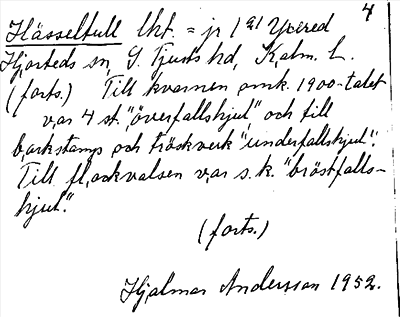 4
Hässelfull lht. = jr 1 21 Yxered
Hjorteds sn, S. Tjusts hd, Kalm. L.
(forts.) Till kvarnen omk. 1900-talet
var 4 st. "överfallshjul" och till
barkstamp och tröskverk "underfallshjul".
Till flackvalsen var s.k. "bröstfalls-
hjul".
(forts.)
Hjalmar Andersson 1952.